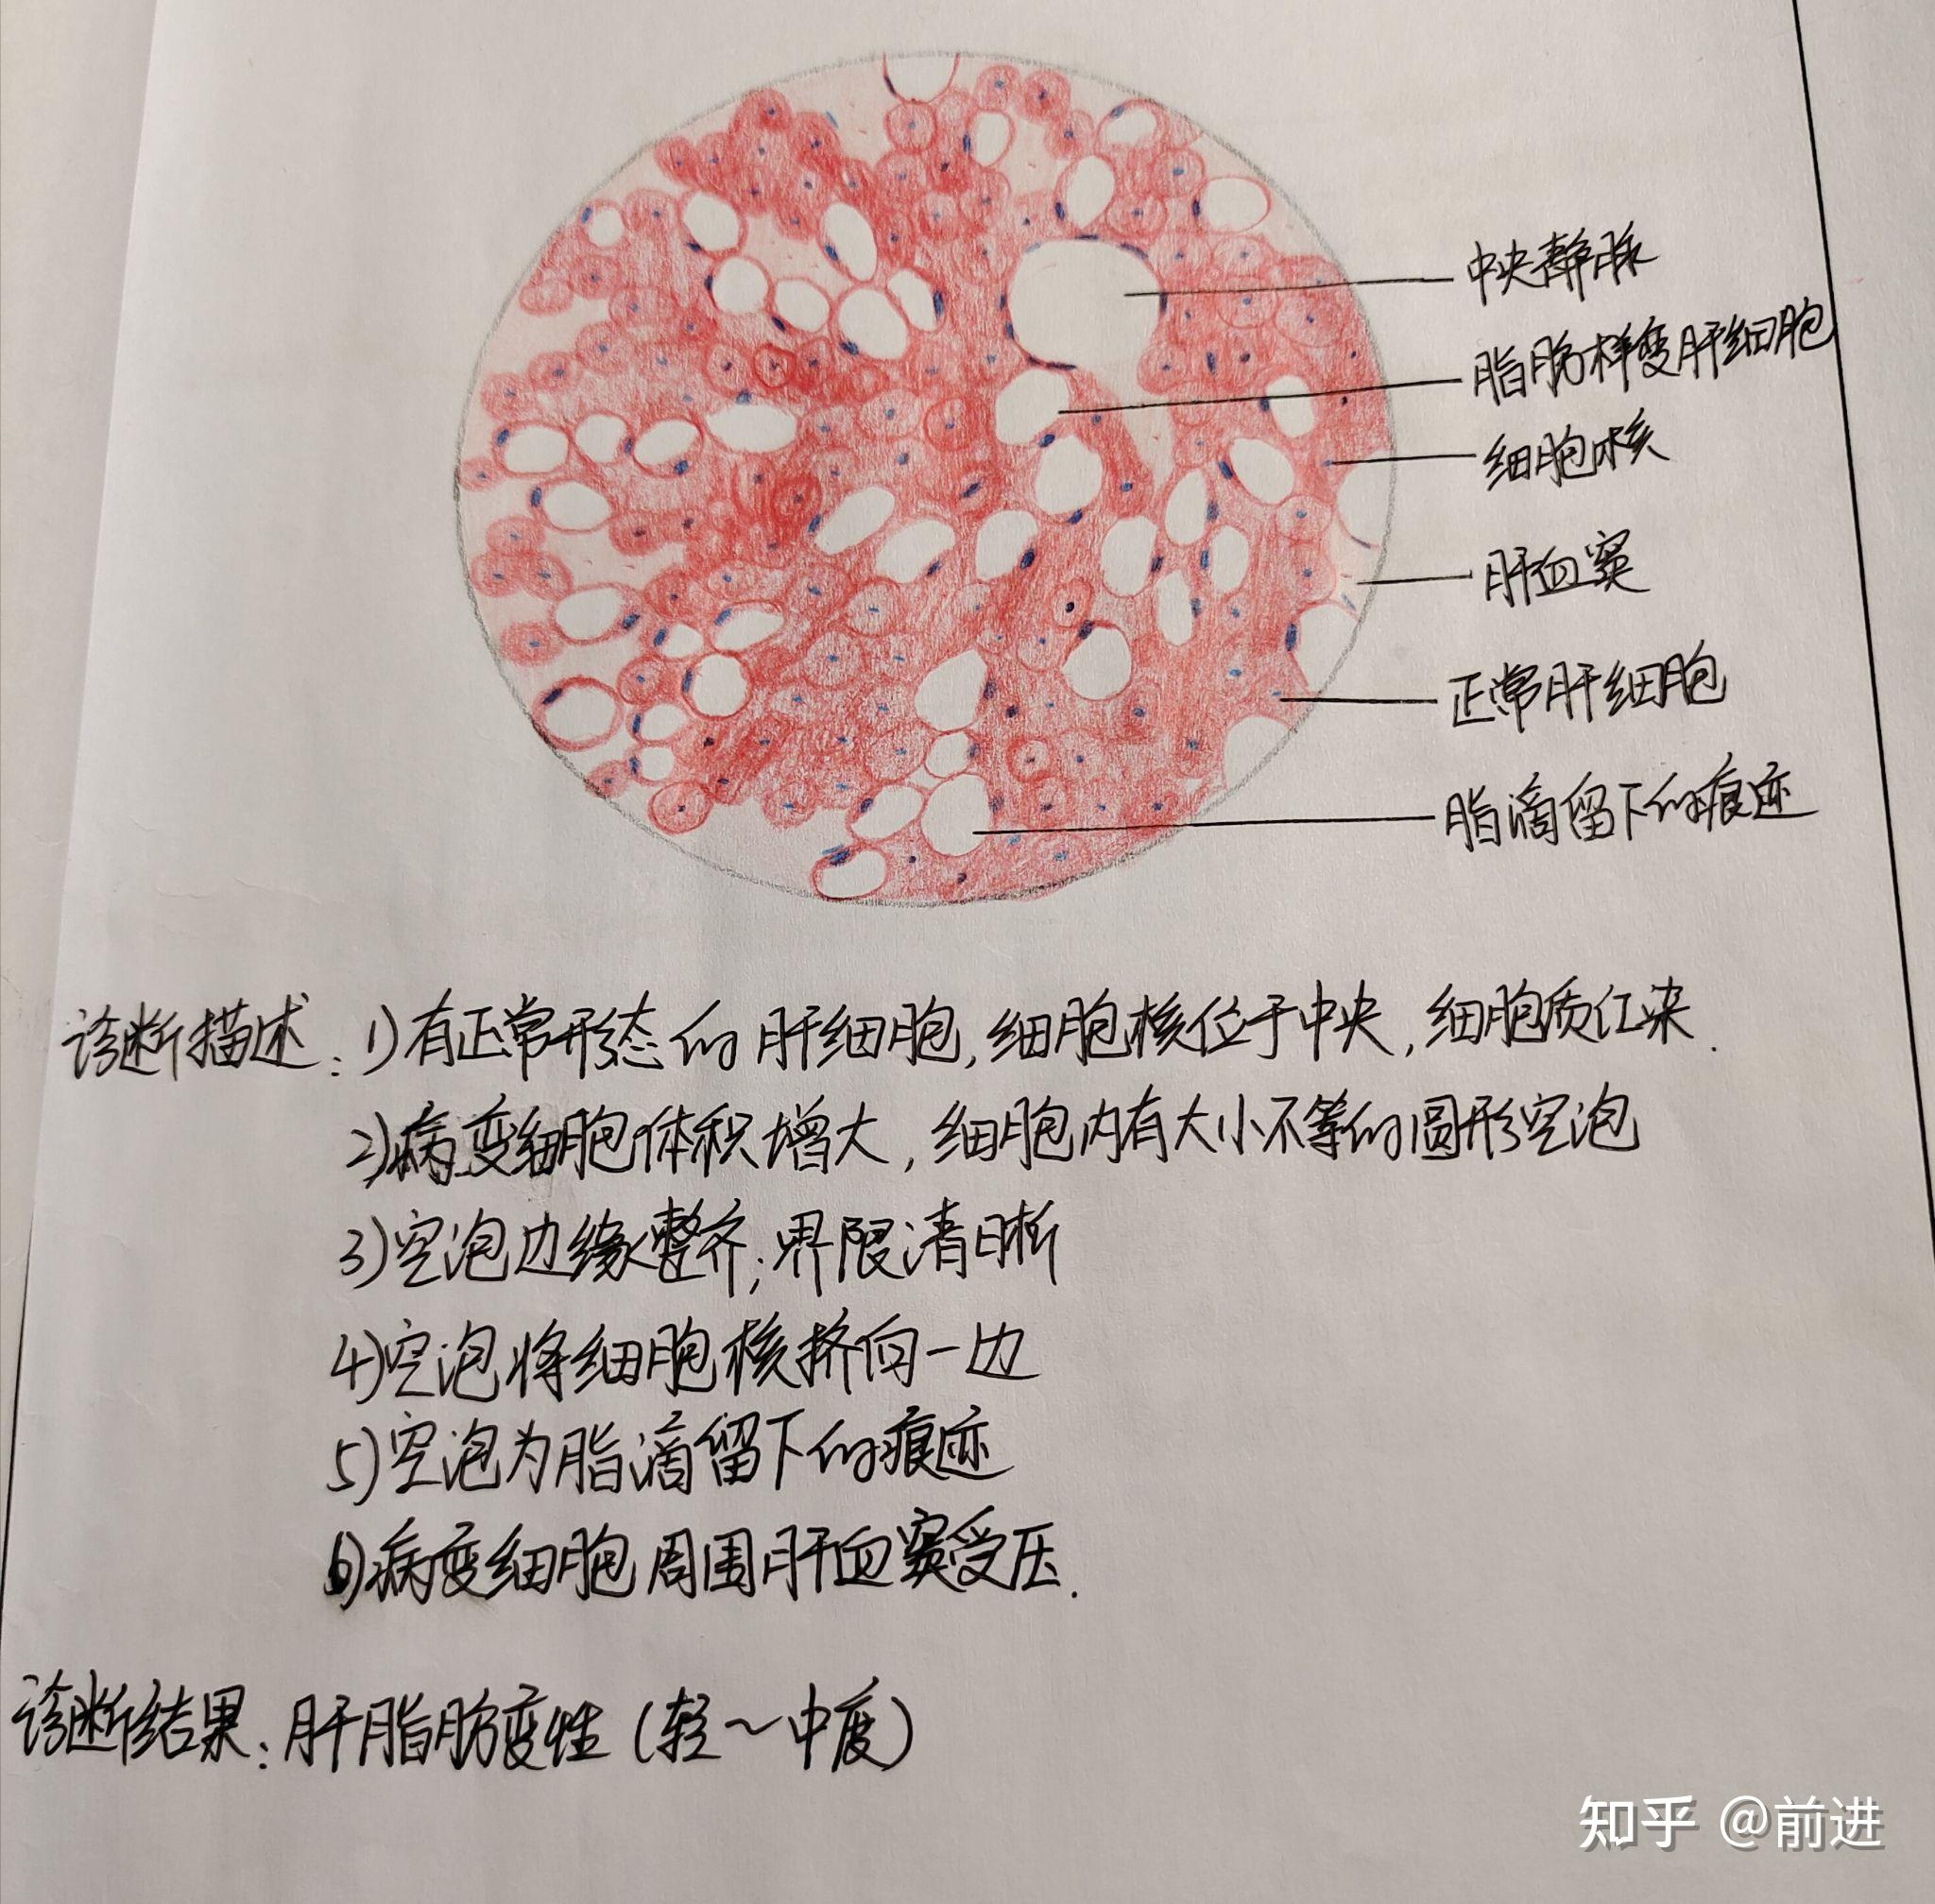 中央静脉
脂肪样变肝细胞
细胞核
肝血窦
正常肝细胞
脂滴留下的痕迹
诊断描述:1)有正常形态的肝细胞,细胞核位于中央,细胞质红染.
2)病变细胞体积增大,细胞内有大小不等的圆形空泡
3)空泡边缘整齐;界限清晰
4)空泡将细胞核挤向一边
5)空泡为脂滴留下的痕迹
6)病变细胞周围肝血窦受压.
诊断结果:肝脂肪变性(轻~中度)
知乎 @前进